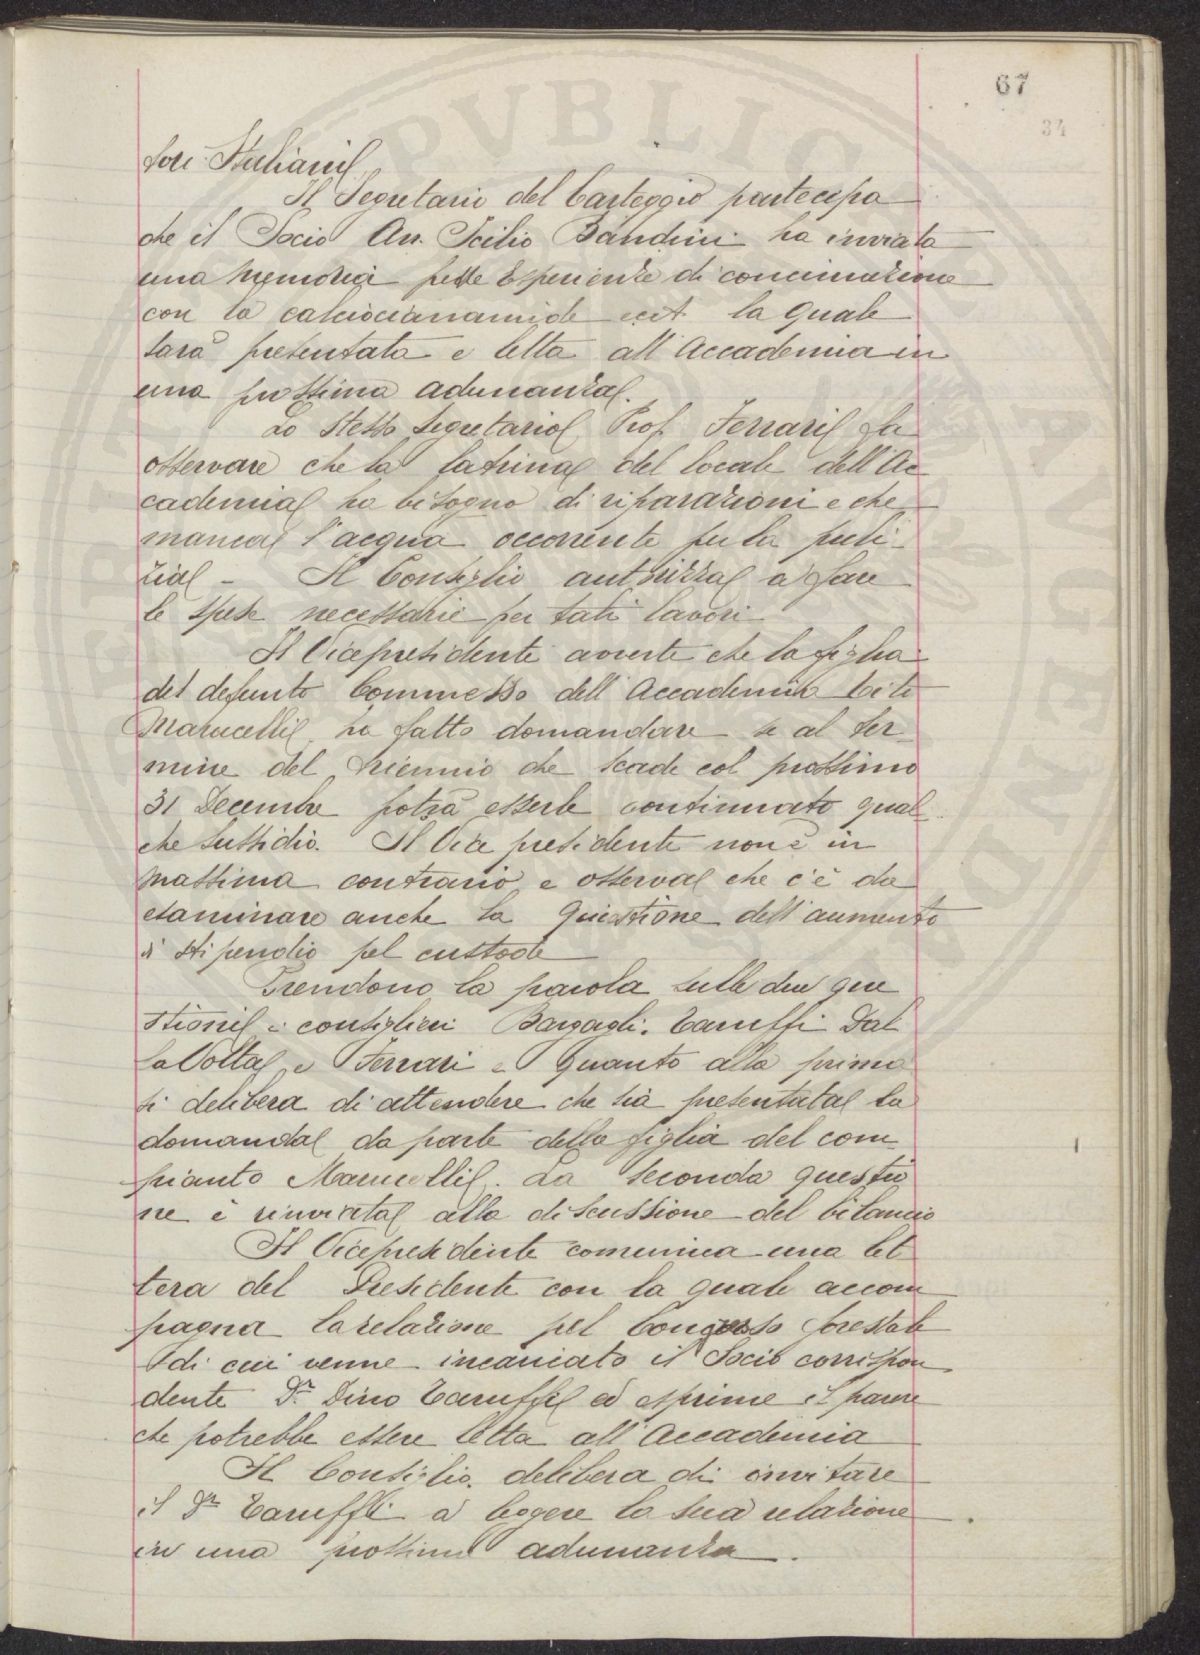 67
34
tori Italiani
Il Segretario del Carteggio partecipa
che il Socio Av. Icilio Bandini ha inviato
una memoria Esperienze di concimazione
con la calciocianamide ecct. la quale
sarà presentata e letta all'Accademia in
una prossima adunanza.
Lo stesso Segretario Prof. Ferrari fa
osservare che la latrina del locale dell'Ac
cademia ha bisogno di riparazioni e che
manca l'acqua occorrente per la puli-
zia - Il Consiglio autorizza a fare
le spese necessarie per tali lavori
Il Vicepresidente avverte che la figlia
del defunto Commesso dell'Accademia
Marucelli, ha fatto domandare se al ter-
mine del triennio che scade col prossimo
31 Decembre potrà esserle continuato qual-
che sussidio. Il Vice presidente non è in
massima contrario e osserva che c'è da
esaminare anche la questione dell'aumento
di stipendio pel custode
Prendono la parola sulle due que
stioni i consiglieri Bargagli, Taruffi Dal
la Volta e Ferrari e quanto alla prima
si delibera di attendere che sia presentata la
domanda da parte della figlia del com-
pianto Marucelli. La seconda questio
ne è rinviata alla discussione del bilancio
Il Vicepresidente comunica una let
tera del Presidente con la quale accom
pagna la relazione pel Congresso forestale
di cui venne incaricato il Socio corrispon
dente Dr. Dino Taruffi ed esprime il parere
che potrebbe essere letta all'Accademia
Il Consiglio delibera di invitare
il Dr Taruffi a leggere la sua relazione
in una prossima adunanza.